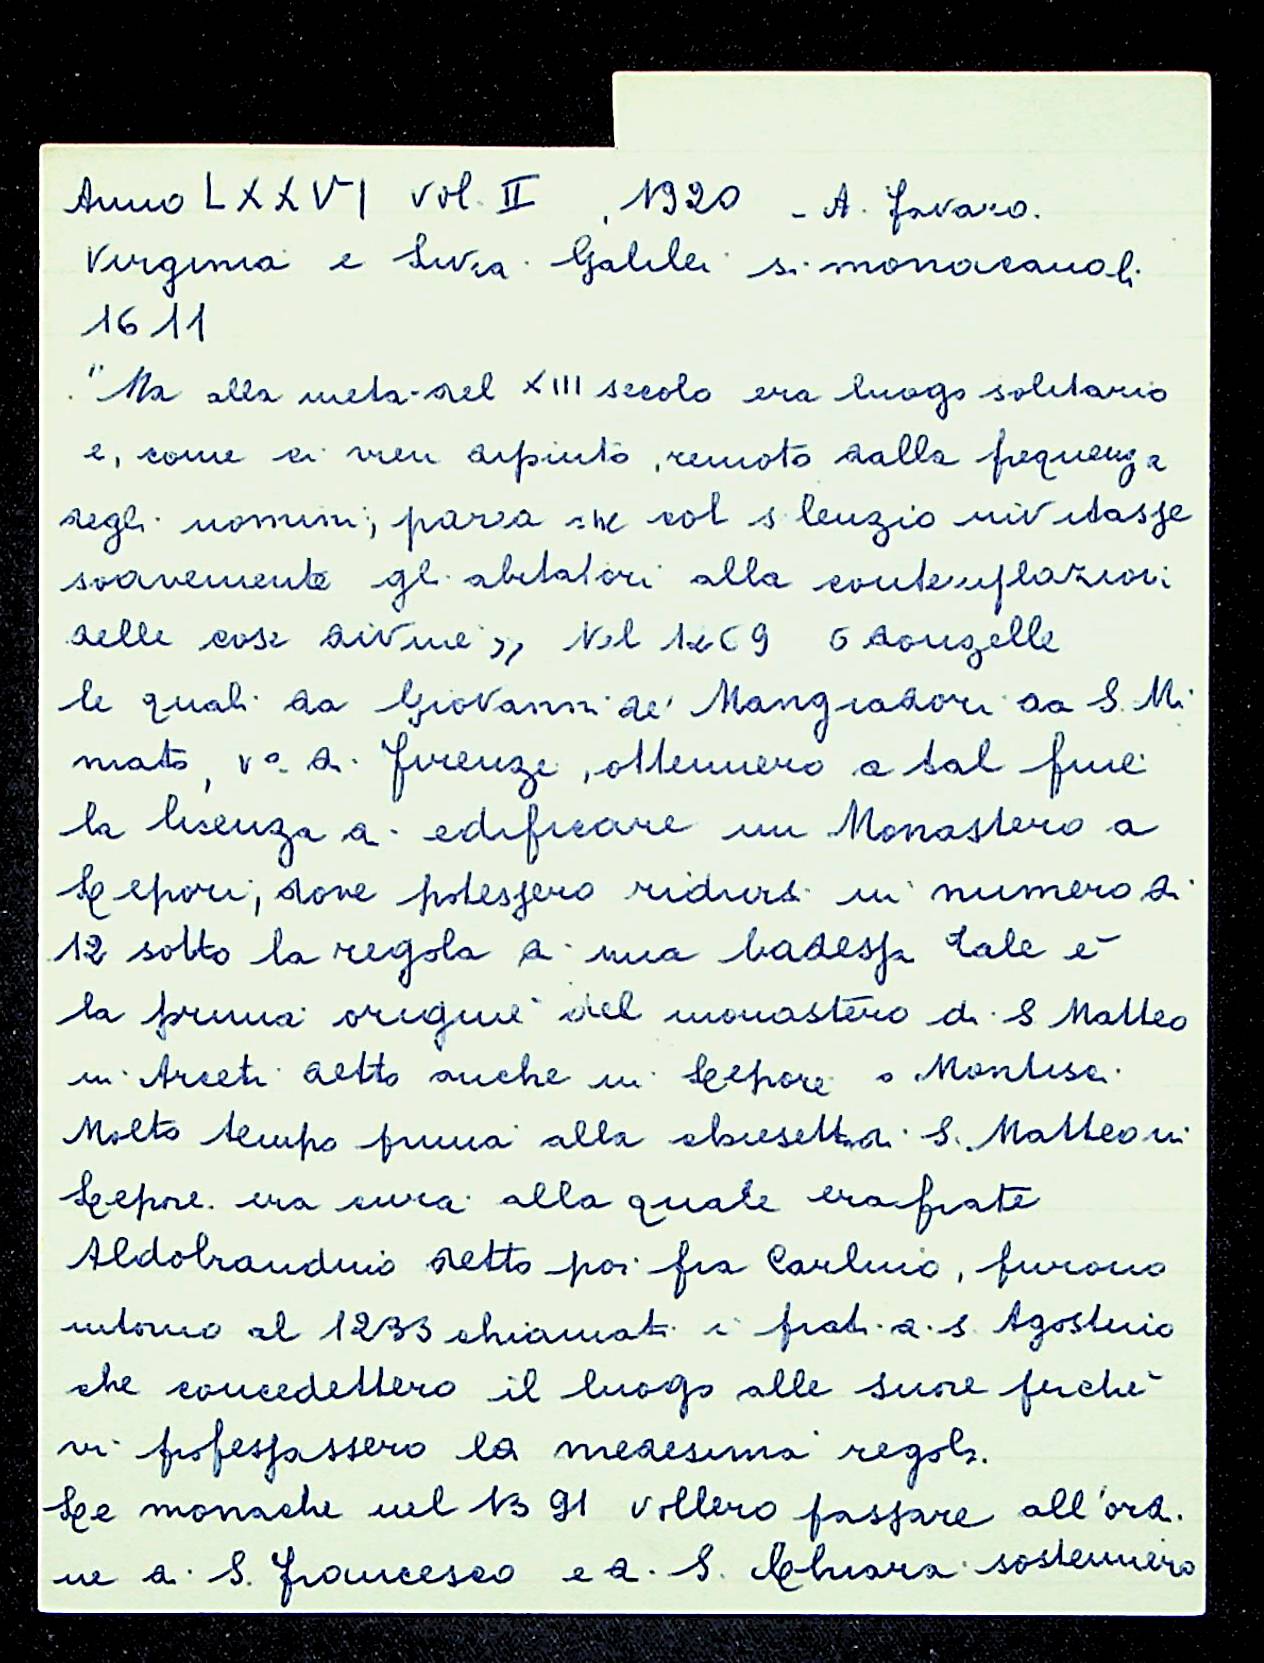 Anno LXXVI vol. II, 1920 - A. Favaro.
Virginia e Livia Galilei si monacarono
1611
"Ma alla metà del XIII secolo era luogo solitario
e, come ci vien dipinto, remoto dalla frequenza
degli uomini, parea che col silenzio invitasse
soavemente gli abitatori alla contemplazioni
delle cose divine» Nel 1269 6 donzelle
le quali da Giovanni de' Mangiadori da S. Mi
niato, v° di Firenze, ottennero a tal fine
la licenza di edificare un Monastero a
Lepori, dove potessero ridursi in numero di
12 sotto la regola di una badessa Tale è
la prima origine del monastero di S Matteo
in Arcetri detto anche in Lepore o Montisci.
Molto tempo prima alla chiesetta di S. Matteo in
Lepore. era cura alla quale era frate
Aldobrandino detto poi fra Carlino, furono
intorno al 1233 chiamati i frati di S. Agostino
che concedettero il luogo alle suore perchè
vi professassero la medesima regola.
Le monache nel 1391 vollero passare all'ord.
ne di S. Francesco e di S. Chiara sostennero